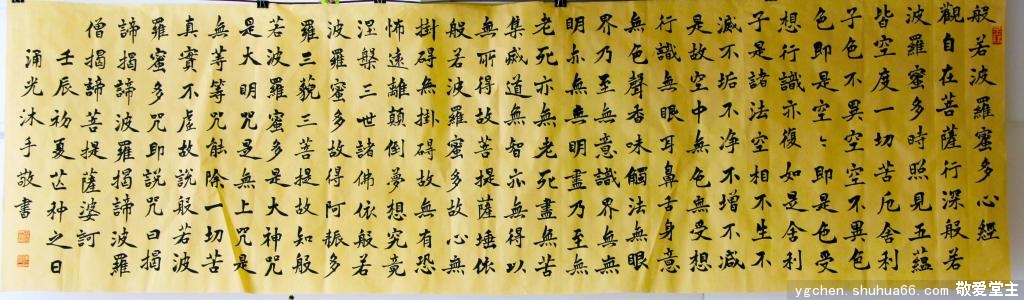 般若波羅蜜多心經
觀自在菩薩行深般若
波羅蜜多時照見五蘊
皆空度一切苦厄舍利
子色不異空空不異色
色即是空々即是色受
想行識亦復如是舍利
子是諸法空相不生不
滅不垢不净不增不减
是故空中無色無受想
行識無眼耳鼻舌身意
無色聲香味觸法無眼
界乃至無意識界無無
明亦無無明盡乃至無
老死亦無老死盡無苦
集滅道無智亦無得以
無所得故菩提薩埵依
般若波羅蜜多故心無
掛碍無掛碍故無有恐
怖遠離顛倒夢想究竟
涅槃三世諸佛依般若
波羅蜜多故得阿耨多
羅三藐三菩提故知般
若波羅蜜多是大神咒
是大明咒是無上咒是
無等等咒能除一切苦
真實不虛故說般若波
羅蜜多咒即說咒曰揭
諦揭諦波羅揭諦波羅
僧揭諦菩提薩婆訶
壬辰初夏芒神之日
涌光沐手敬書
ygchen.shuhua66.com 敬爱堂主